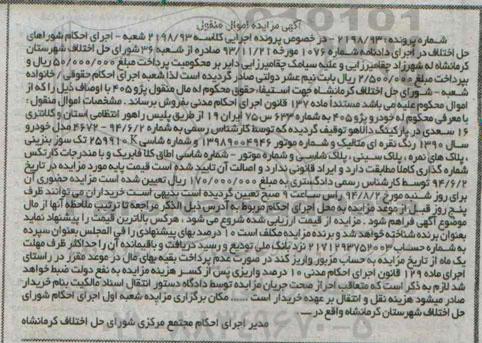 آگهی مزایده اموال منقول
شماره پرونده: ۲۱۹۸/۹۳ - در خصوص پرونده اجرایی کلاسه ۲۱۹۸/۹۳ شعبه - اجرای احکام شوراهای
حل اختلاف در اجرای دادنامه شماره ۱۰۷۶ مورخه ۹۳/۱۱/۲۱ صادره از شعبه ۳۶ شورای حل اختلاف شهرستان
کرمانشاه له شهرزاد چقامیرزایی و علیه سیامک چقامیرزایی دایر بر محکومیت پرداخت مبلغ ۵۰/۰۰۰/۰۰۰ ریال و
پرداخت مبلغ ۲/۵۰۰/۰۰۰ ریال بابت نیم عشر دولتی صادر گردیده است لذا شعبه اجرای احکام حقوقی / خانواده
شعبه - شورای حل اختلاف کرمانشاه جهت استیفاء حقوق محکوم له مال منقول پژو ۴۰۵ با اوصاف ذیل را که از
اموال محکوم علیه می باشد مستنداً ماده ۱۳۷ قانون اجرای احکام مدنی بفروش برساند. مشخصات اموال منقول:
با معرفی محکوم له خودرو پژو ۴۰۵ به شماره ۶۳۳ س ۷۵ ایران ۱۹ از طریق پلیس راهور انتظامی استان و کلانتری
۱۶ سعدی در پارکینگ دالاهو توقیف گردیده که توسط کارشناس رسمی به شماره ۹۴/۶/۲-۴۶۷۲ مدل خودرو
سال ۱۳۹۰ رنگ نقره ای متالیک و شماره موتور ۱۳۹۸۹۰۰۴۹۴۶ و شماره شاسی K ۲۵۹۹۱۰ تک سوز بنزینی
، پلاک های نمره ، پلاک سینی ، پلاک شاسی و شماره موتور - شماره شاسی اطاق کلا فابریک و با مندرجات کارتکس
شماره گذاری کاملا مطابقت دارد و ایراد قانونی ندارد و اصالت آن تایید شده است قیمت پایه مورد مزایده در تاریخ
۹۴/۶/۲ توسط کارشناس رسمی دادگستری به مبلغ ۱۷۰/۰۰۰/۰۰۰ ریال تعیین شده است مزایده حضوری آن
برای روز شنبه مورخ ۹۴/۸/۲ راس ساعت ۹ صبح تعیین گردیده است بدیهی است خریداران می توانند ظرف
پنج روز قبل از موعد مزایده به محل اجرای احکام مربوط به آدرس ذیل الذکر مراجعه تا ترتیب ملاحظه آنها از مال
موضوع آگهی فراهم شود . مزایده از قیمت ارزیابی شده شروع می شود ، هرکس بالاترین قیمت را پیشنهاد نماید
بعنوان برنده شناخته خواهد شد و برنده مزایده مکلف است ۱۰ درصد بهای پیشنهادی را فی المجلس بعنوان سپرده
به شماره حساب ۲۱۷۱۲۹۳۷۵۲۰۰۳ نزد بانک ملی تودیع و رسید دریافت و باقیمانده آن را حداکثر ظرف مهلت
یک ماه از تاریخ مزایده به حساب مزبور واریز کند در صورت عدم پرداخت بقیه بهای مال در موعد مقرر در راستای
اجرای ماده ۱۲۹ قانون اجرای احکام مدنی ۱۰ درصد واریزی پس از کسر هزینه مزایده به نفع دولت ضبط خواهد
شد لازم به ذکر است که متعاقب احراز صحت جریان مزایده توسط دادگاه دستور انتقال اسناد مالکیت بنام خریدار
صادر میشود هزینه نقل و انتقال بر عهده خریدار است ...... مکان برگزاری مزایده شعبه اول اجرای احکام شورای
حل اختلاف شهرستان کرمانشاه واقع در ....
مدیر اجرای احکام مجتمع مرکزی شورای حل اختلاف کرمانشاه